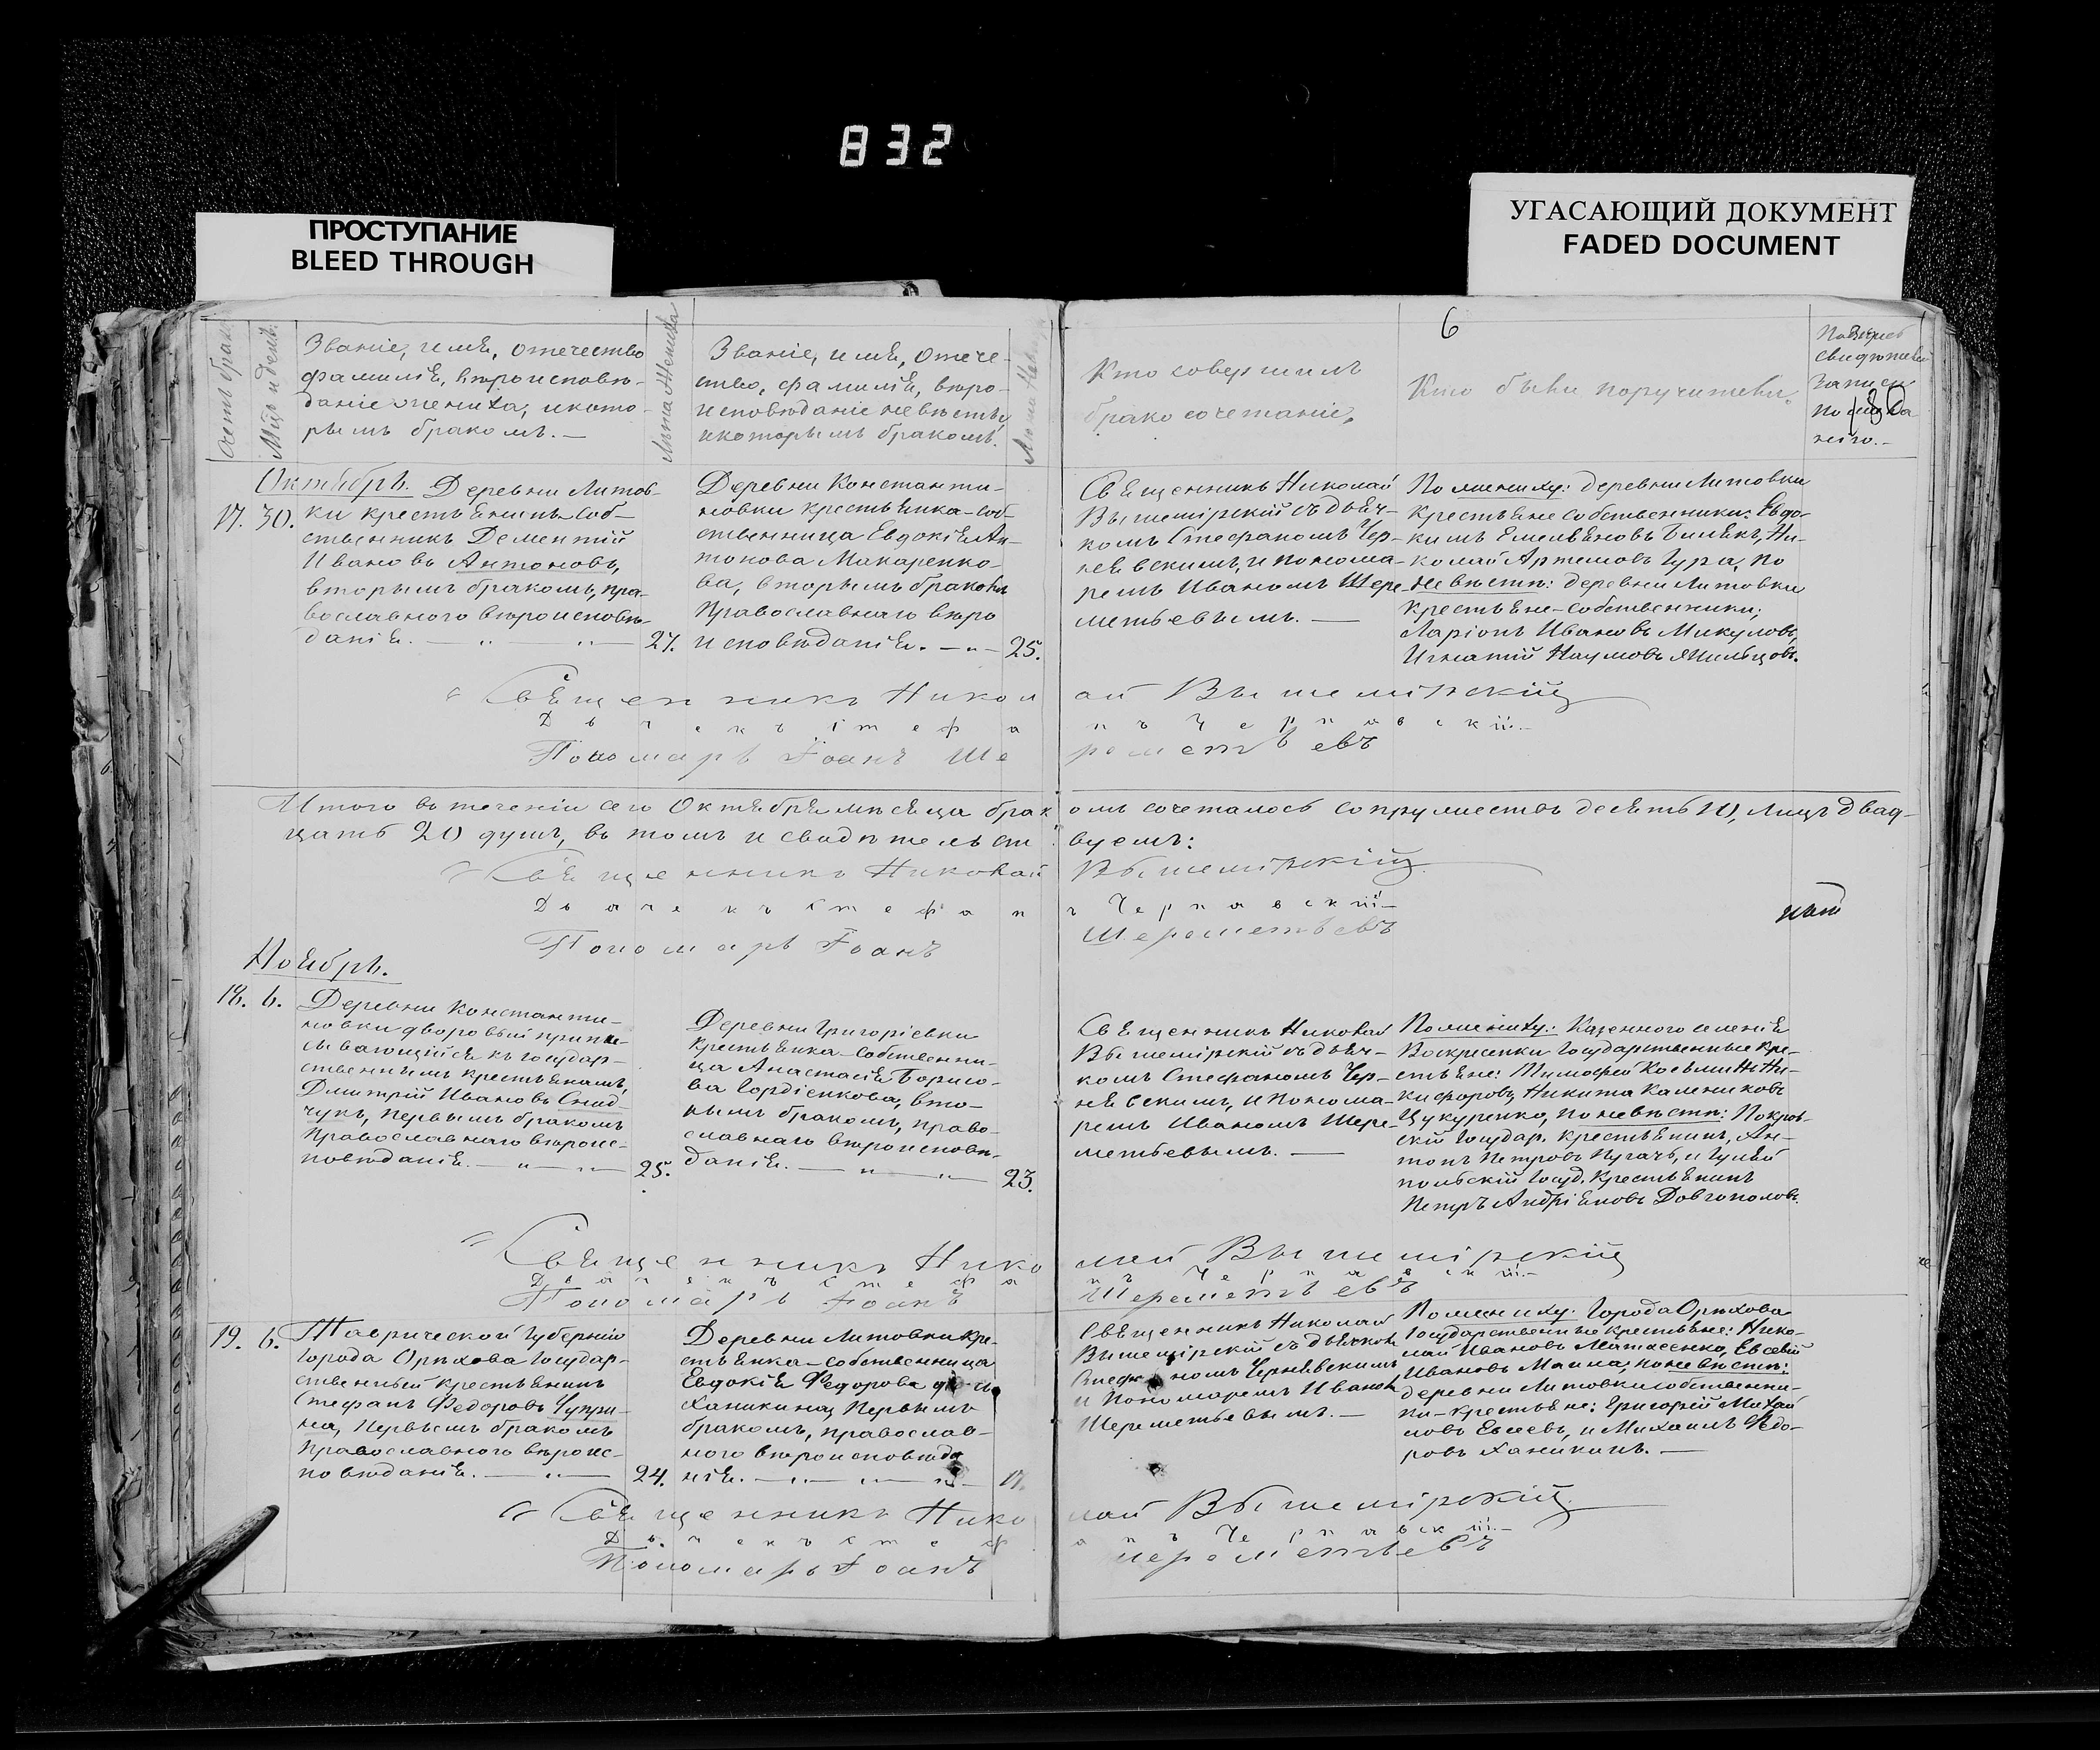 832
ПРОСТУПАНИЕ
BLEED THROUGH
УГАСАЮЩИЙ ДОКУМЕНТ
FADED DOCUMENT
6
Счетъ брак.
Мѣс. и день.
Званіе, имя, отечество
фамилія, вѣроисповѣ-
даніе жениха, и кото-
рымъ бракомъ.—
Лѣта Жениха
Званіе, имя, отече-
ство, фамилія, вѣро-
исповѣданіе невѣсты,
и которымъ бракомъ.
Лѣта Невѣсты
Кто совершилъ
бракосочетаніе,
Кто были поручители.
свидѣтелей
записи
Октябрь.
17. 30.
Деревни Литов-
ки крестьянинъ соб-
ственникъ Дементій
Ивановъ Антоновъ,
вторымъ бракомъ, пра-
вославного вѣроисповѣ-
данія. — „ — „ — 27.
Деревни Константи-
новки крестьянка-соб-
ственница Евдокія Ан-
тонова Макаренко-
ва, вторымъ бракомъ
Православнаго вѣро
исповѣданія. — „ — 25.
Священникъ Николай
Вышемірскій съ дьяч-
комъ Стефаномъ Чер-
нявскимъ, и понома-
ремъ Иваномъ Шере-
метьевымъ. —
По жениху: деревни Литовки
крестьяне собственники: Евдо-
кимъ Емельяновъ Билыкъ, Ни-
колай Артемовъ Гура, по
невѣстѣ: деревни Литовки
крестьяне-собственники;
Ларіонъ Ивановъ Микуловъ,
Игнатій Наумовъ
Священникъ Николай Вышемірскій
Дьячекъ Стефанъ Чернавскій.—
Пономарь Іоанъ Шереметьевъ
Итого въ теченіи сего Октября мѣсяца бракомъ сочеталось супружествъ десять 10, лицъ двад-
цать 20 душъ, въ томъ и свидѣтельствуемъ:
Священникъ Николай Вышемірскій
Дьячекъ Стефанъ Чернавскій—
Пономарь Іоанъ Шереметьевъ
Ноябрь.
18. 6.
Деревни Константи-
новки дворовый припи-
сывающійся къ государ-
ственнымъ крестьянамъ,
Дмитрій Ивановъ Снид-
чукъ, первымъ бракомъ
Православнаго вѣроис-
повѣданія. — „ — „ — 25.
Деревни Григорiевки
крестьянка-собственни-
ца Анастасія Борисо-
ва Гордіенкова, вто-
рымъ бракомъ, право-
славнаго вѣроисповѣ-
данія. — „ — „ — 23.
Священникъ Николай
Вышемірскій съ дьяч-
комъ Стефаномъ Чер-
нявскимъ, и понома-
ремъ Иваномъ Шере-
метьевымъ. —
По жениху: Казенного имѣнія
Воскресенки Государственные кре-
стьяне: Тимофей Козьминъ Ни-
кифоровъ, Никита Калениковъ
Цукуренко, по невѣстѣ: Покров-
скій Государ. крестьянинъ, Ан-
тонъ Петровъ Пугачъ, и Гуляй
польскій Госуд. Крестьянинъ
Петръ Андріяновъ Довгополовъ.
Священникъ Николай Вышемірскій
Дьячекъ Стефанъ Чернавскій.—
Пономарь Іоанъ Шереметьевъ
19. 6.
Таврической Губерніи
города Орѣхова Государ-
ственный крестьянинъ
Стефанъ Федоровъ Чупри-
на, Первымъ бракомъ
Православного вѣроис-
повѣданія. — „ — 24.
Деревни Литовки кре-
стьянка-собственница
Евдокія Федорова
Ханикина, Первымъ
бракомъ, православ-
ного вѣроисповѣда
нія. — „ — „ —
Священникъ Николай
Вышемірскій съ дьячкомъ
Стефаномъ Чернявскимъ
и Пономаремъ Иваномъ
Шереметьевымъ. —
По жениху: Города Орѣхова
Государственные крестьяне: Нико-
лай Ивановъ Матвеенко, Евсевій
Ивановъ Маяла, по невѣстѣ:
деревни Литовки собственни-
ки-крестьяне: Григорій Михай
ловъ Евсеевъ, и Михаилъ Федо-
ровъ Ханикинъ. —
Священникъ Николай Вышемірскій
Дьячекъ Стефанъ Чернавскій.—
Пономарь Іоанъ Шереметьевъ